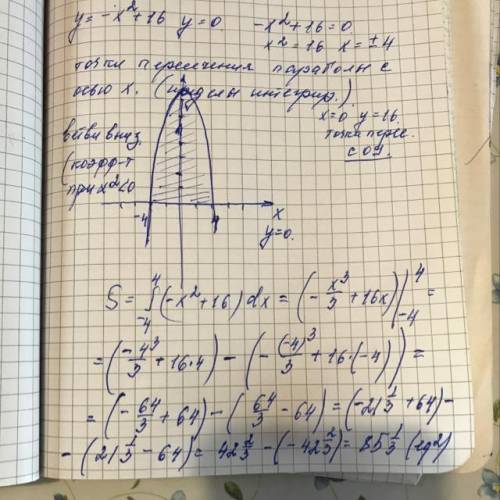 y = -x² + 16 y = 0 -x² + 16 = 0
x² = 16 x = ±4
точки пересечения параболы с
осью x. (пределы интегрир.)
x=0 y=16
точка перес.
с оу.
ветви вниз
(коэфф-т
при x²<0
-4 4 x
y=0.
S = ∫₋₄⁴ (-x² + 16) dx = (-x³/3 + 16x) |₋₄⁴ =
= (-4³/3 + 16·4) - (-(-4)³/3 + 16·(-4)) =
= (-64/3 + 64) - (64/3 - 64) = (-21 1/3 + 64) -
- (21 1/3 - 64) = 42 2/3 - (-42 2/3) = 85 1/3 (ед²)